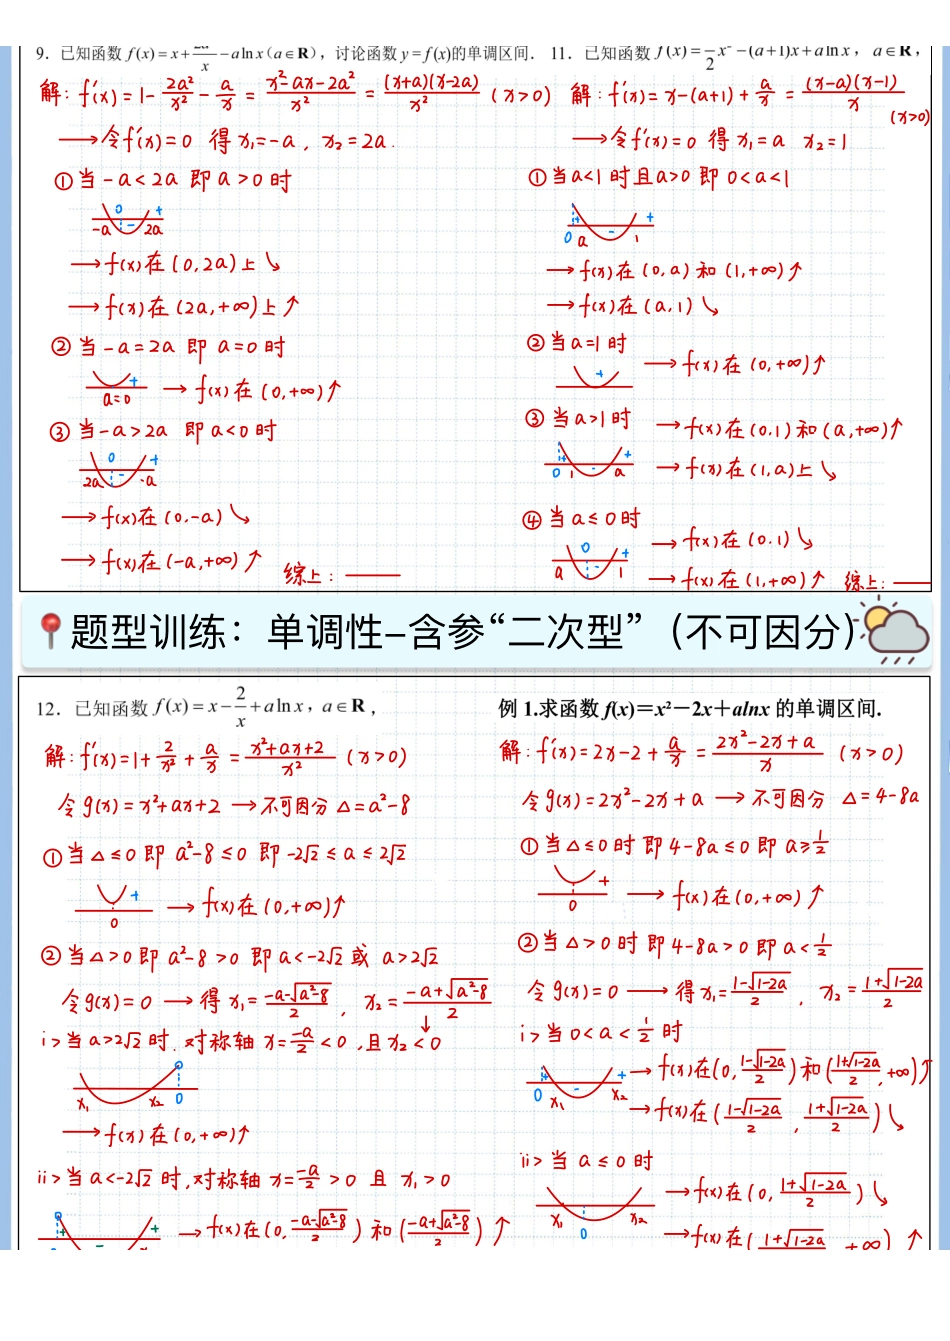 9．已知函数 f(x) = x + 2a²/x − a ln x（a∈R），讨论函数 y = f(x)的单调区间．
解：f'(x) = 1 − 2a²/x² − a/x = (x²−ax−2a²)/x² = (x+a)(x−2a)/x² (x>0)
⟶ 令f'(x)=0 得 x₁=−a，x₂=2a.
①当 −a<2a 即 a>0 时
0 + − −a 2a
⟶f(x)在(0,2a)上↘
⟶f(x)在(2a,+∞)上↗
②当 −a=2a 即 a=0 时
+ a=0 ⟶ f(x)在(0,+∞)↗
③当 −a>2a 即 a<0 时
0 + − 2a -a
⟶f(x)在(0,-a)↘
⟶f(x)在(-a,+∞)↗
综上：——
11．已知函数 f(x) = 1/2 x² −(a+1)x + a ln x，a∈R，
解：f'(x) = x−(a+1)+ a/x = (x−a)(x−1)/x (x>0)
⟶令f'(x)=0 得 x₁=a x₂=1
①当a<1 时且a>0 即 0<a<1
+ − + 0 a 1
⟶f(x)在(0,a)和(1,+∞)↗
⟶f(x)在(a,1)↘
②当a=1时 ⟶f(x)在(0,+∞)↗
+
③当a>1时 ⟶f(x)在(0,1)和(a,+∞)↗
+ − + 0 1 a ⟶f(x)在(1,a)上↘
④当a≤0时 ⟶f(x)在(0.1)↘
0 + − a 1 ⟶f(x)在(1,+∞)↗ 综上：——
题型训练：单调性–含参“二次型”（不可因分）
12．已知函数 f(x) = x − 2/x + a ln x，a∈R，
解：f'(x)=1+ 2/x² + a/x = (x²+ax+2)/x² (x>0)
令g(x)=x²+ax+2 ⟶不可因分 △=a²−8
①当△≤0即 a²−8≤0 即 −2√2≤a≤2√2
+ 0 ⟶f(x)在(0,+∞)↗
②当△>0即 a²−8>0 即 a<−2√2 或 a>2√2
令g(x)=0 ⟶得 x₁=(−a−√(a²−8))/2，x₂=(−a+√(a²−8))/2
i>当a>2√2时.对称轴 x=−a/2<0，且x₂<0
x₁ x₂ 0
⟶f(x)在(0,+∞)↗
ii>当a<−2√2时，对称轴x=−a/2>0 且 x₁>0
+ − + ⟶f(x)在(0,(−a−√(a²−8))/2)和((−a+√(a²−8))/2)↗
例 1.求函数 f(x)＝x²－2x＋alnx 的单调区间.
解：f'(x)=2x−2+ a/x = (2x²−2x+a)/x (x>0)
令g(x)=2x²−2x+a ⟶不可因分 △=4−8a
①当△≤0时 即4−8a≤0 即a≥1/2
+ 0 ⟶f(x)在(0,+∞)↗
②当△>0时 即4−8a>0 即a<1/2
令g(x)=0 ⟶得x₁=(1−√(1−2a))/2，x₂=(1+√(1−2a))/2
i>当0<a<1/2时
+ − + 0 x₁ x₂ ⟶f(x)在(0,(1−√(1−2a))/2)和((1+√(1−2a))/2,+∞)↗
⟶f(x)在((1−√(1−2a))/2,(1+√(1−2a))/2)↘
ii>当a≤0时
x₁ x₂ 0 ⟶f(x)在(0,(1+√(1−2a))/2)↘
⟶f(x)在((1+√(1−2a) +∞)↗